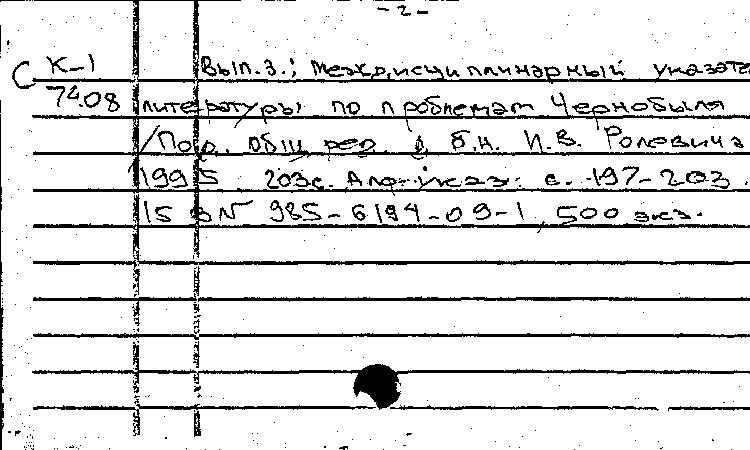 - 2 -
С К-1 Вып.3.: Междисциплинарный указате
7408 литературы по проблемам Чернобыля
/Под. общ. ред. д. б.н. И.В. Ролевича
1995 203с. Алф. указ: с. 197-203.
ISBN 985-6194-09-1, 500 экз.